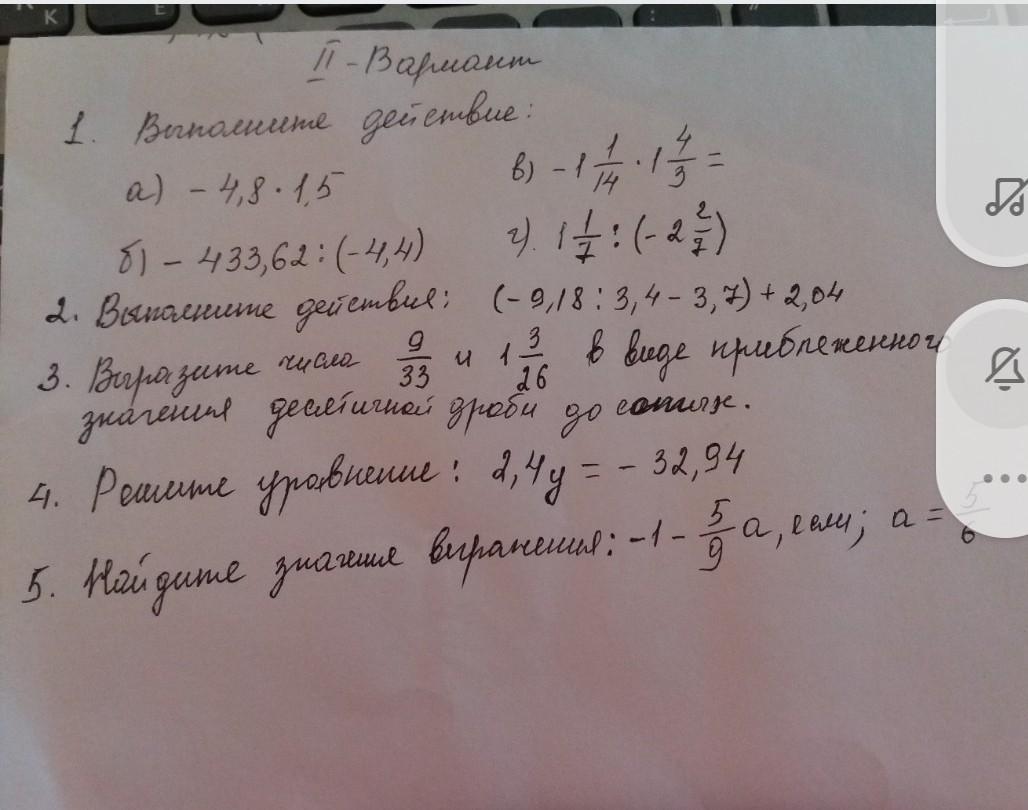 II - Вариант
1. Выполните действие:
а) - 4,8 · 1,5
в) - 1 1/14 · 1 4/3 =
б) - 433,62 : (-4,4)
г). 1 1/7 : (- 2 2/7)
2. Выполните действия: (- 9,18 : 3,4 - 3,7) + 2,04
3. Выразите числа 9/33 и 1 3/26 в виде приближенного
значения десятичной дроби до сотых.
4. Решите уравнение: 2,4y = - 32,94
5. Найдите значения выражения: -1 - 5/9 a, если; a = 5/6